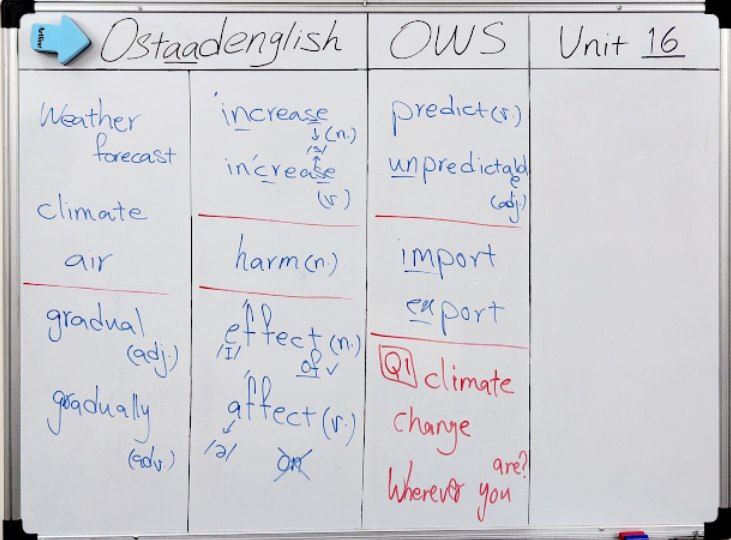 Ostaadenglish OWS Unit 16
Weather
forecast
climate
air
gradual
(adj.)
gradually
(adv.)
'increase
↓(n.)
/s/
↑
in'crease
(v.)
harm(n.)
effect(n.)
/I/ of ✓
affect(v.)
/ə/ on
predict(v.)
unpredictable
(adj)
import
export
Q1 climate
change
Wherever you are?